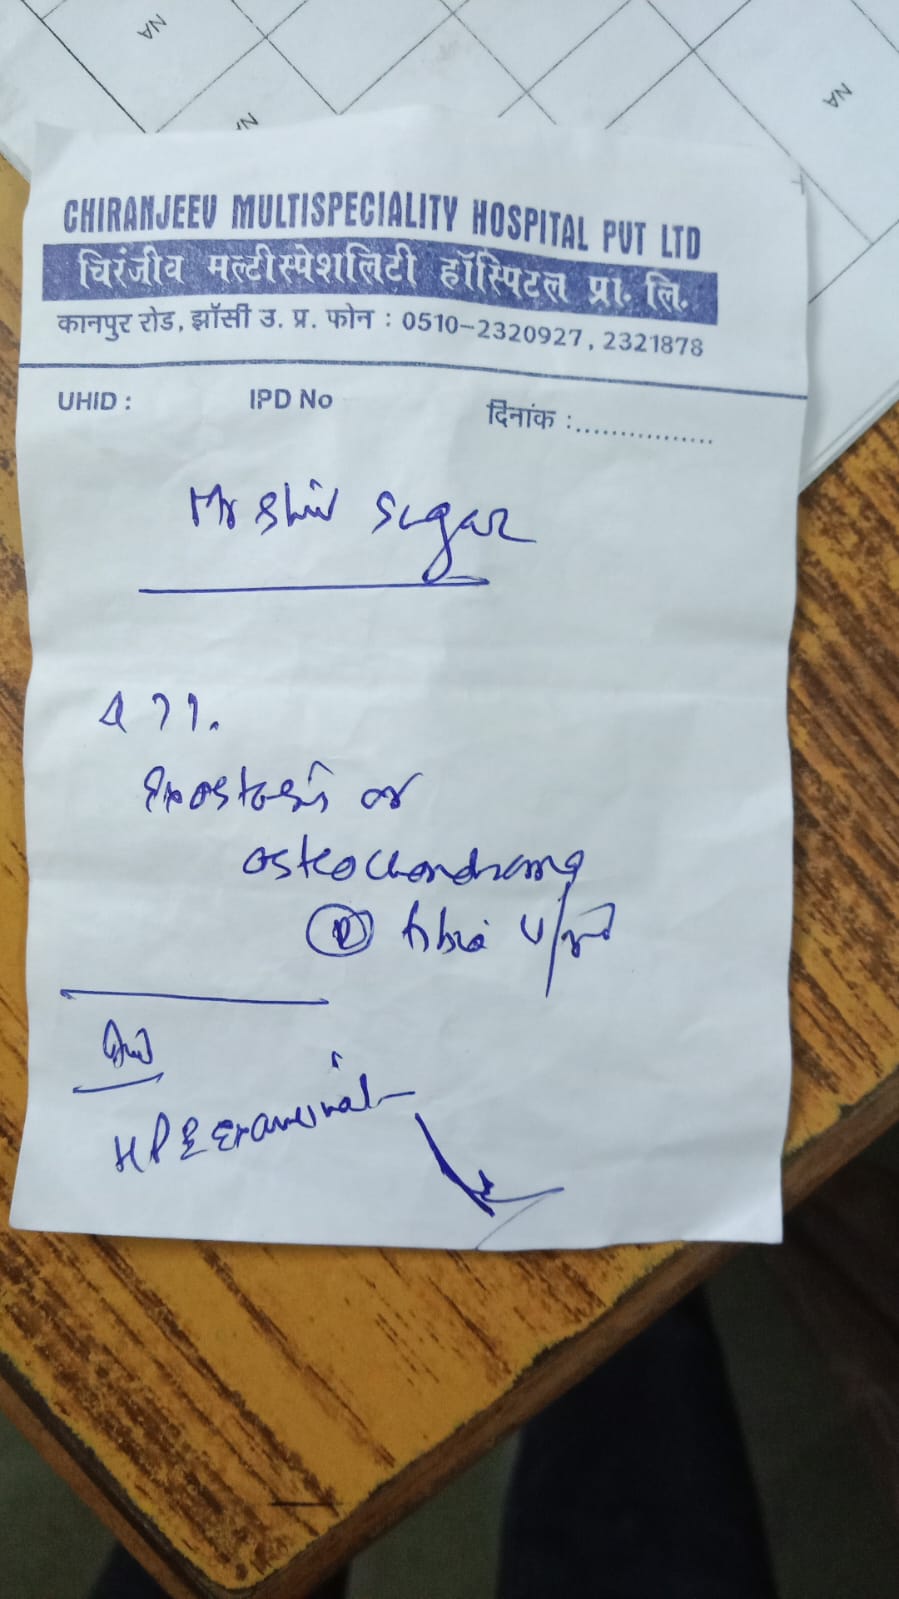 NA
NA
CHIRANJEEV MULTISPECIALITY HOSPITAL PVT LTD
चिरंजीव मल्टीस्पेशलिटी हॉस्पिटल प्रा. लि.
कानपुर रोड, झाॅसी उ. प्र. फोन : 0510-2320927, 2321878
UHID : IPD No दिनांक :................
Mr Shiv Sagar
Exostosis or
osteochondroma
tibia
HPE Examinat